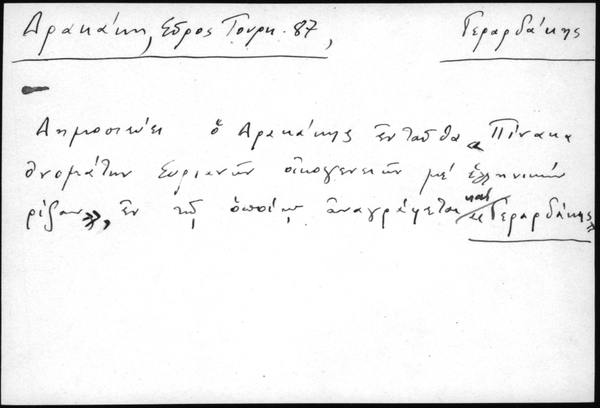 Αρακάκη, Έβρος Τουρκ. 87, Γεραρδάκης
Δημοσιεύει ὁ Αρακάκης ἐνταῦθα «Πίνακα
ὀνομάτων οἰκογενειῶν μέ ἑλληνικήν
ρίζαν», ἐν τῷ ὁποίῳ ἀναγράφεται καί «Γεραρδάκης»